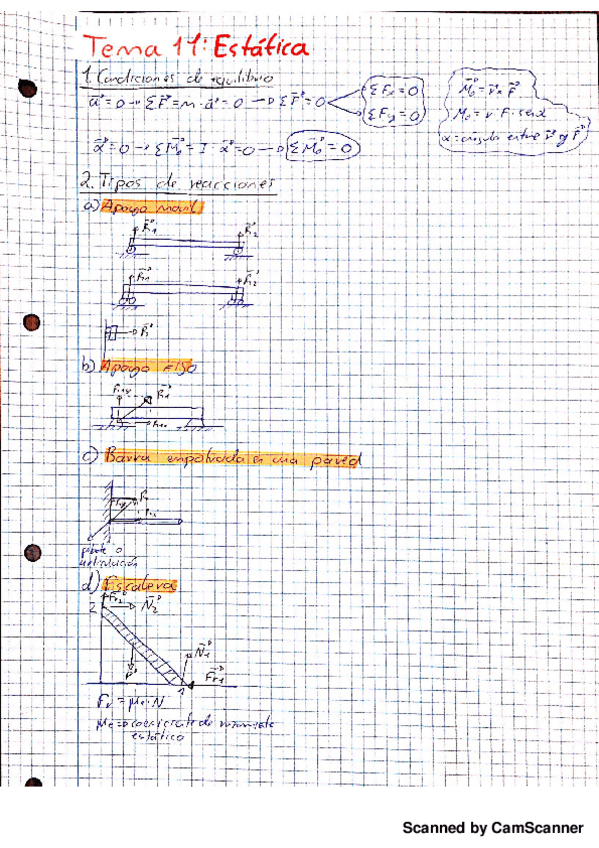 Tema 11: Estática
1. Condiciones de equilibrio
a⃗ = 0 → ΣF⃗ = m · a⃗ = 0 → ΣF⃗ = 0
ΣFx = 0
ΣFy = 0
M⃗o = r⃗ x F⃗
Mo = r · F · senα
α = ángulo entre r⃗ y F⃗
α⃗ = 0 → ΣM⃗o = I · α⃗ = 0 → ΣM⃗o = 0
2. Tipos de reacciones
a) Apoyo movil
R⃗1 R⃗2
R⃗1 R⃗2
R⃗
b) Apoyo Fijo
R⃗1
c) Barra empotrada en una pared
R
o
articulación
d) Escalera
Fr2 N⃗2
2
N⃗1
P⃗ F⃗r1
1
Fr = μe · N
μe => coeficiente de rozamiento
estático
Scanned by CamScanner